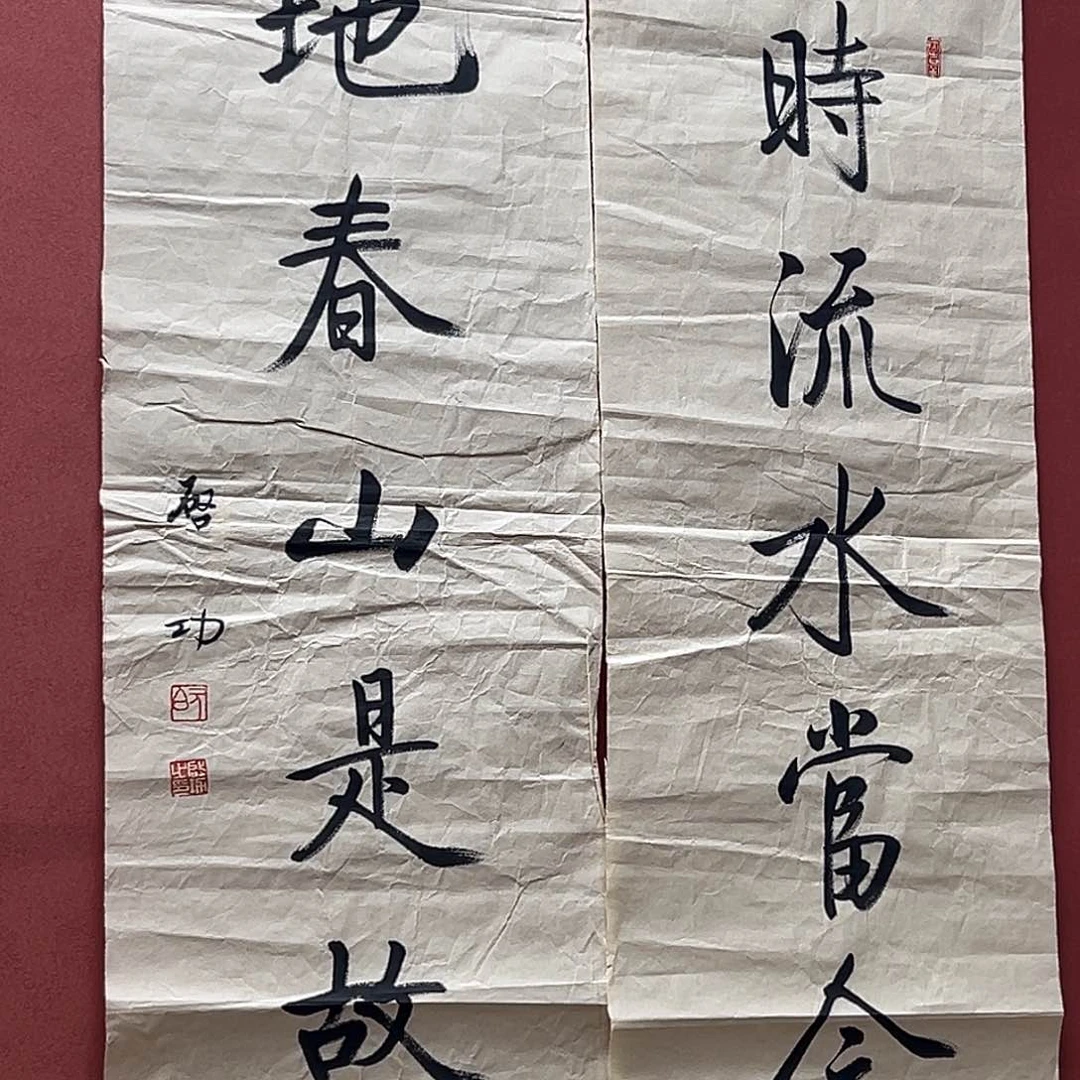 時流水當今
地春山是故
啓功